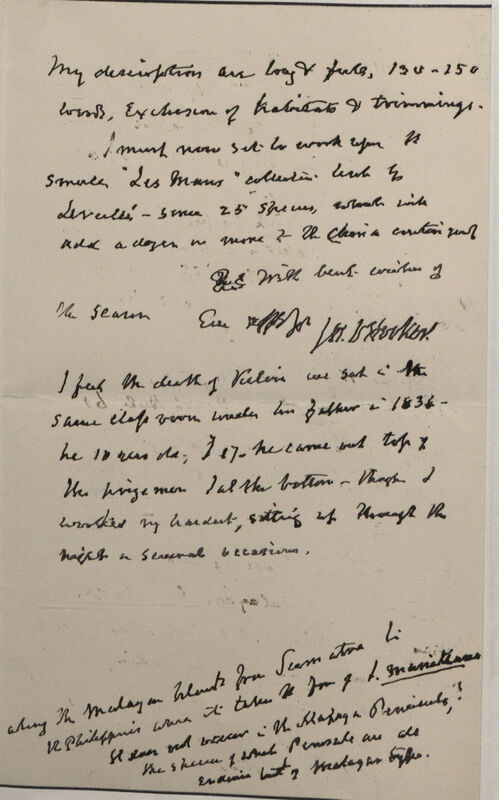 My description are long & full, 130–250
words, Exclusion of habitats & trimmings.
I must now set to work upon the
small "Les Mans" collection lent by
Leveillé – some 25 species, which will
add a dozen or more to the China contingent
With best wishes of
the season Ever Jos. D Hooker.
I feel the death of Kelvin we sat in the
same class room under his father in 1836 –
he 10 years old, I 17 – he came out top of
the prize men I at the bottom – though I
worked my hardest, sitting up through the
night on several occasions.
along the Malayan Islands from Sumatra to
the Philippines where it takes the form of I.
It does not occur in the Malayan Peninsula,
the species of which Peninsula are all
endemic but of Malayan type.